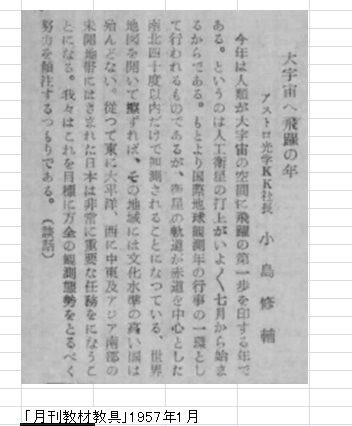 大宇宙へ飛躍の年
アストロ光学KK社長 小島修輔
今年は人類が大宇宙の空間に飛躍の第一歩を印する年で
ある。というのは人工衛星の打上がいよ〱七月から始ま
るからである。もとより国際地球観測年の行事の一環とし
て行われるものであるが、衛星の軌道が赤道を中心とした
南北四十度以内だけで観測されることになつている、世界
地図を開いて案ずれば、その地域には文化水準の高い国は
殆んどない。従つて東に太平洋、西に中東及アジア南部の
未開地帯にはさまれた日本は非常に重要な任務をになうこ
とになる。我々はこれを目標に万全の観測態勢をとるべく
努力を傾注するつもりである。（談話）
「月刊教材教具」1957年1月